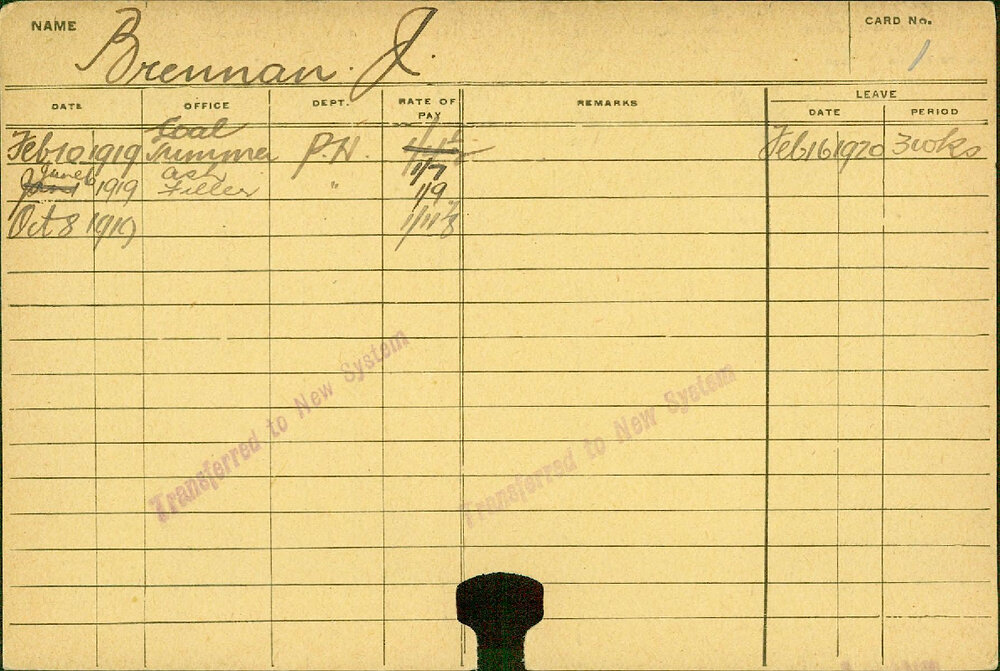 NAME Brennan. J.
CARD No. 1
DATE OFFICE DEPT. RATE OF PAY REMARKS LEAVE
DATE PERIOD
Coal
Feb 10 1919 Trimmer P.H. 1/7 Feb 16 1920 3 wks
June 6 1919 Ash Filler " 1/9
Oct 8 1919 1/11
Transferred to New System
Transferred to New System